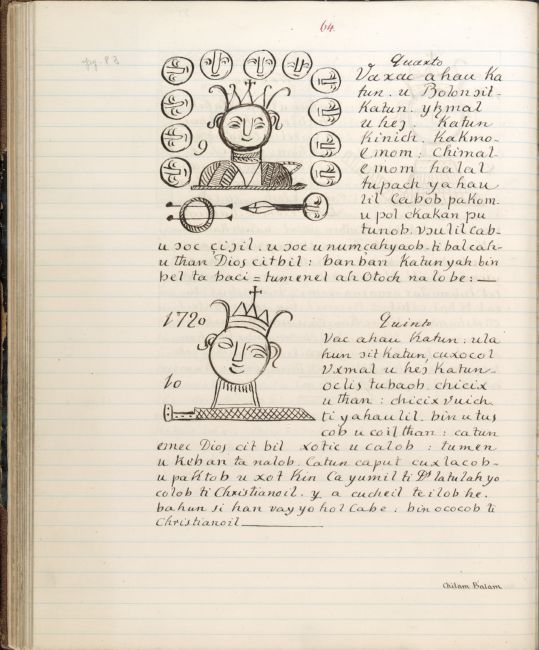 64
pg. 83
Quarto
Vaxac ahau Ka
tun. u Bolonsit-
Katun. ykmal
u hej. Katun
Kinich. Kakmo-
emom: Chimal-
emom halal
tupach yahau
lil Cabob pakom.
u pol chakan pu
tunob. vsulil cab-
9
u xoc çiçil. u xoc unumçahyaob. ti bal cah-
u than Dios citbil: banban Katunyah bin
bel ta baci = tumenel ah Otoch nalobe:
1720
10
Quinto
Vac ahau Katun: ula
hun sit Katun, cuxocol
Vxmal u hej Katun-
oclis tubaob. chicix
u than: chicix vuich
ti yahaulil. bin u tus
cob u coil than: catun
emec Dios cit bil xotic u calob: tumen
u Keban ta nalob. Catun caput cuxlacob-
u paktob u xot Kin Ca yumil ti Ds latulah yo
colob ti Christianoil. y a cucheil te ilob he.
bahun si han vay yo hol Cabe: bin ococob ti
Christianoil
Chilam Balam